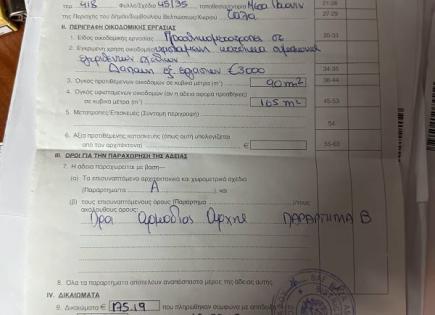 τεμ. 418 Φύλλο/Σχέδιο 45/35 τοποθεσία
της Περιοχής του Δήμου/Συμβουλίου Βελτιώσεως/Χωριού Τάλα
ΙΙ. ΠΕΡΙΓΡΑΦΗ ΟΙΚΟΔΟΜΙΚΗΣ ΕΡΓΑΣΙΑΣ
1. Είδος οικοδομικής εργασίας Προσθηκομετατροπές σε
2. Εγκριμένη χρήση οικοδομής υφιστάμενη κατοικία
Δαπάνη εξ εργασιών €3000
3. Όγκος προτιθέμενων οικοδομών σε κυβικά μέτρα (m³) 90 m²
4. Όγκος υφισταμένων οικοδομών (αν η άδεια αφορά προσθήκες)
σε κυβικά μέτρα (m³) 165 m²
5. Μετατροπές/Επισκευές (Σύντομη περιγραφή)
6. Αξία προτιθέμενης κατασκευής (όπως αυτή υπολογίζεται
από τον αρχιτέκτονα) €
ΙΙΙ. ΟΡΟΙ ΓΙΑ ΤΗΝ ΠΑΡΑΧΩΡΗΣΗ ΤΗΣ ΑΔΕΙΑΣ
7. Η άδεια παραχωρείται με βάση—
(α) Τα επισυναπτόμενα αρχιτεκτονικά και χωρομετρικά σχέδια
(Παράρτημα Α ) και
(β) τους επισυναπτόμενους όρους (Παράρτημα )/τους
ακόλουθους όρους:
Όροι Αρμόδιας Αρχής ΠΑΡΑΡΤΗΜΑ Β
8. Όλα τα παραρτήματα αποτελούν αναπόσπαστο μέρος της άδειας αυτής.
IV. ΔΙΚΑΙΩΜΑΤΑ
9. Δικαιώματα € 175.19 που πληρώθηκαν σύμφωνα με απόδειξη
21-26
27-29
30-33
34-35
36-44
45-53
54
55-63